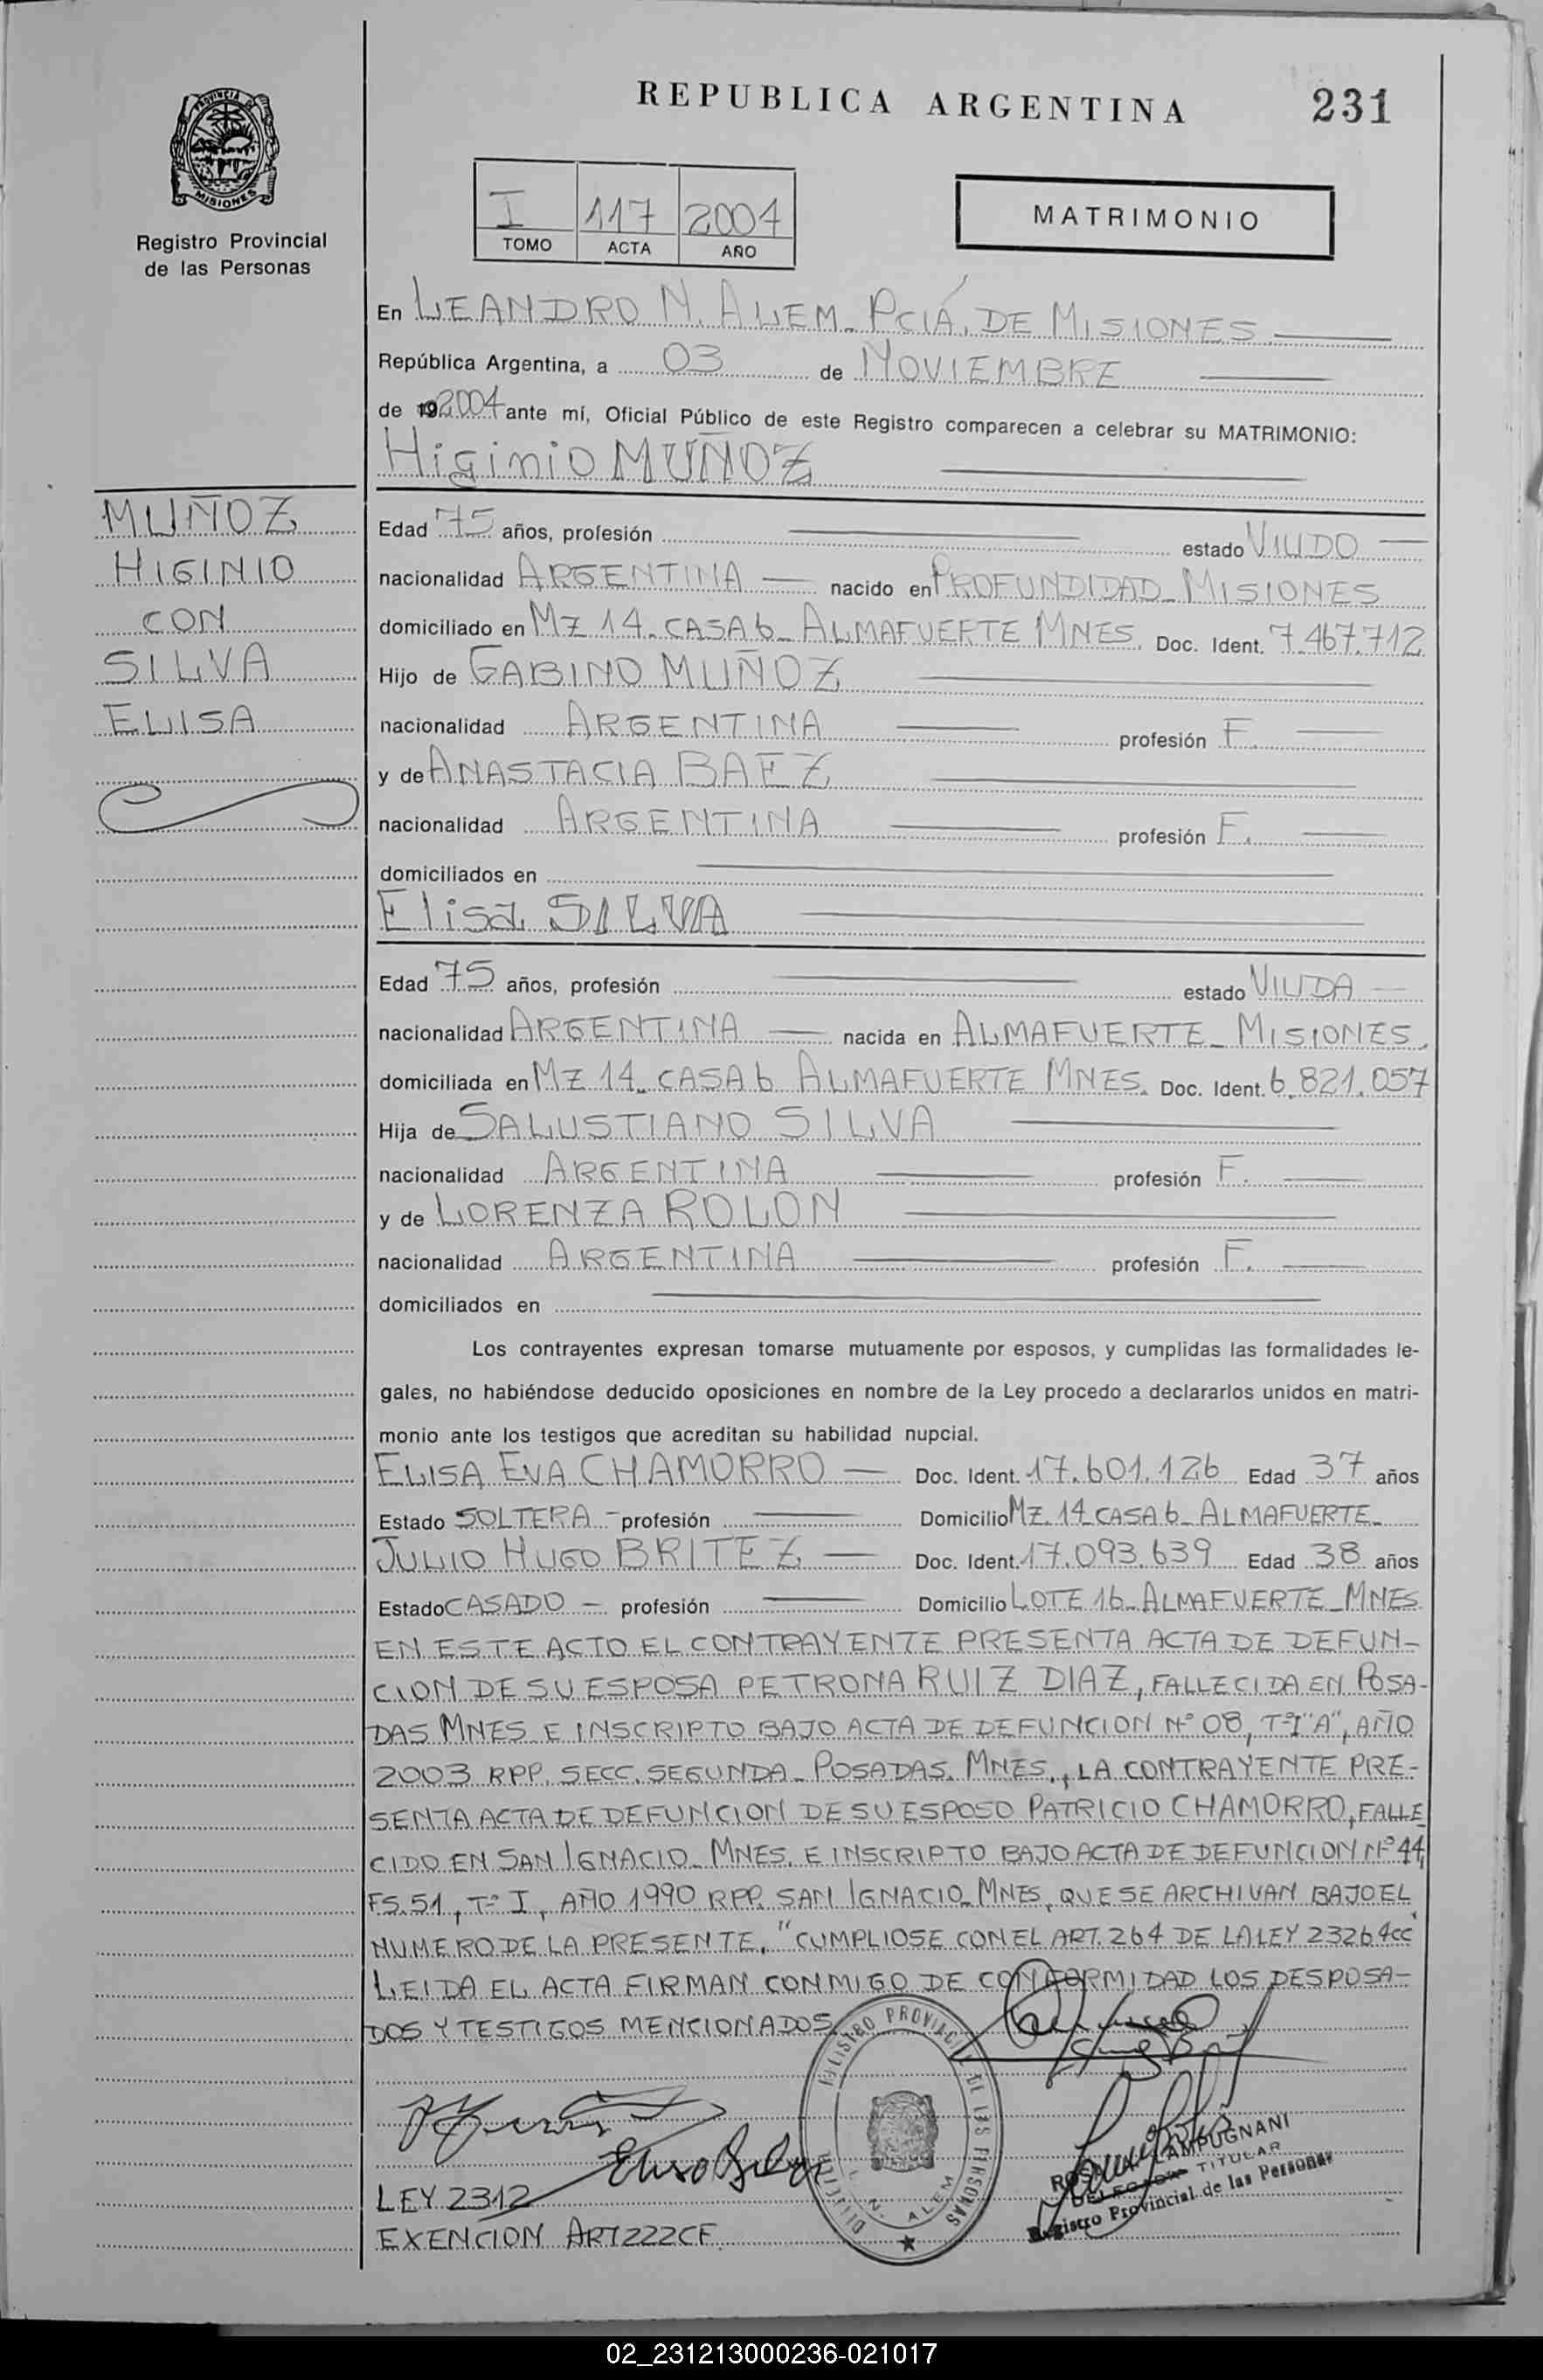 REPUBLICA ARGENTINA
231
PROVINCIA DE
MISIONES
Registro Provincial
de las Personas
I 117 2004
TOMO ACTA AÑO
MATRIMONIO
En LEANDRO N. ALEM - PCIÁ. DE MISIONES
República Argentina, a 03 de NOVIEMBRE
de 19 2004 ante mí, Oficial Público de este Registro comparecen a celebrar su MATRIMONIO:
Higinio MUÑOZ
MUÑOZ
HIGINIO
CON
SILVA
ELISA
Edad 75 años, profesión estado VIUDO
nacionalidad ARGENTINA nacido en PROFUNDIDAD - MISIONES
domiciliado en MZ 14 - CASA 6 - ALMAFUERTE MNES. Doc. Ident. 7.467.712
Hijo de GABINO MUÑOZ
nacionalidad ARGENTINA profesión F.
y de ANASTACIA BAEZ
nacionalidad ARGENTINA profesión F.
domiciliados en
Elisa SILVA
Edad 75 años, profesión estado VIUDA
nacionalidad ARGENTINA nacida en ALMAFUERTE - MISIONES.
domiciliada en MZ 14 - CASA 6 ALMAFUERTE MNES. Doc. Ident. 6.821.057
Hija de SALUSTIANO SILVA
nacionalidad ARGENTINA profesión F.
y de LORENZA ROLON
nacionalidad ARGENTINA profesión F.
domiciliados en
Los contrayentes expresan tomarse mutuamente por esposos, y cumplidas las formalidades le-
gales, no habiéndose deducido oposiciones en nombre de la Ley procedo a declararlos unidos en matri-
monio ante los testigos que acreditan su habilidad nupcial.
ELISA EVA CHAMORRO Doc. Ident. 17.601.126 Edad 37 años
Estado SOLTERA - profesión Domicilio MZ. 14 CASA 6 - ALMAFUERTE -
JULIO HUGO BRITEZ Doc. Ident. 17.093.639 Edad 38 años
Estado CASADO - profesión Domicilio LOTE 16 - ALMAFUERTE - MNES
EN ESTE ACTO EL CONTRAYENTE PRESENTA ACTA DE DEFUN-
CION DE SU ESPOSA PETRONA RUIZ DIAZ, FALLECIDA EN POSA-
DAS MNES E INSCRIPTO BAJO ACTA DE DEFUNCION Nº 08, Tº I "A", AÑO
2003 RPP. SECC. SEGUNDA - POSADAS. MNES., LA CONTRAYENTE PRE-
SENTA ACTA DE DEFUNCION DE SU ESPOSO PATRICIO CHAMORRO, FALLE
CIDO EN SAN IGNACIO - MNES. E INSCRIPTO BAJO ACTA DE DEFUNCION Nº 44,
FS. 51, Tº I, AÑO 1990 RPP. SAN IGNACIO - MNES, QUE SE ARCHIVAN BAJO EL
NUMERO DE LA PRESENTE. "CUMPLIOSE CON EL ART. 264 DE LA LEY 23264cc"
LEIDA EL ACTA FIRMAN CONMIGO DE CONFORMIDAD LOS DESPOSA-
DOS Y TESTIGOS MENCIONADOS
REGISTRO PROVINCIAL DE LAS PERSONAS
L. N. ALEM
TITULAR
Registro Provincial de las Personas
LEY 2312
EXENCION ART 222 CF
02_231213000236-021017